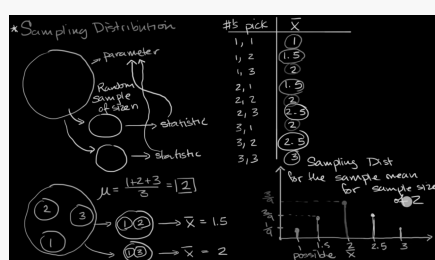 *Sampling Distribution
parameter
Random
sample
of size n
statistic
statistic
μ = 1+2+3/3 = 2
2
3
1
1 2 → x̄ = 1.5
1 3 → x̄ = 2
#'s pick x̄
1, 1 1
1, 2 1.5
1, 3 2
2, 1 1.5
2, 2 2
2, 3 2.5
3, 1 2
3, 2 2.5
3, 3 3
Sampling Dist
for the sample mean
for sample size
of 2
3/9
2/9
1/9
1 1.5 2 2.5 3
possible x̄